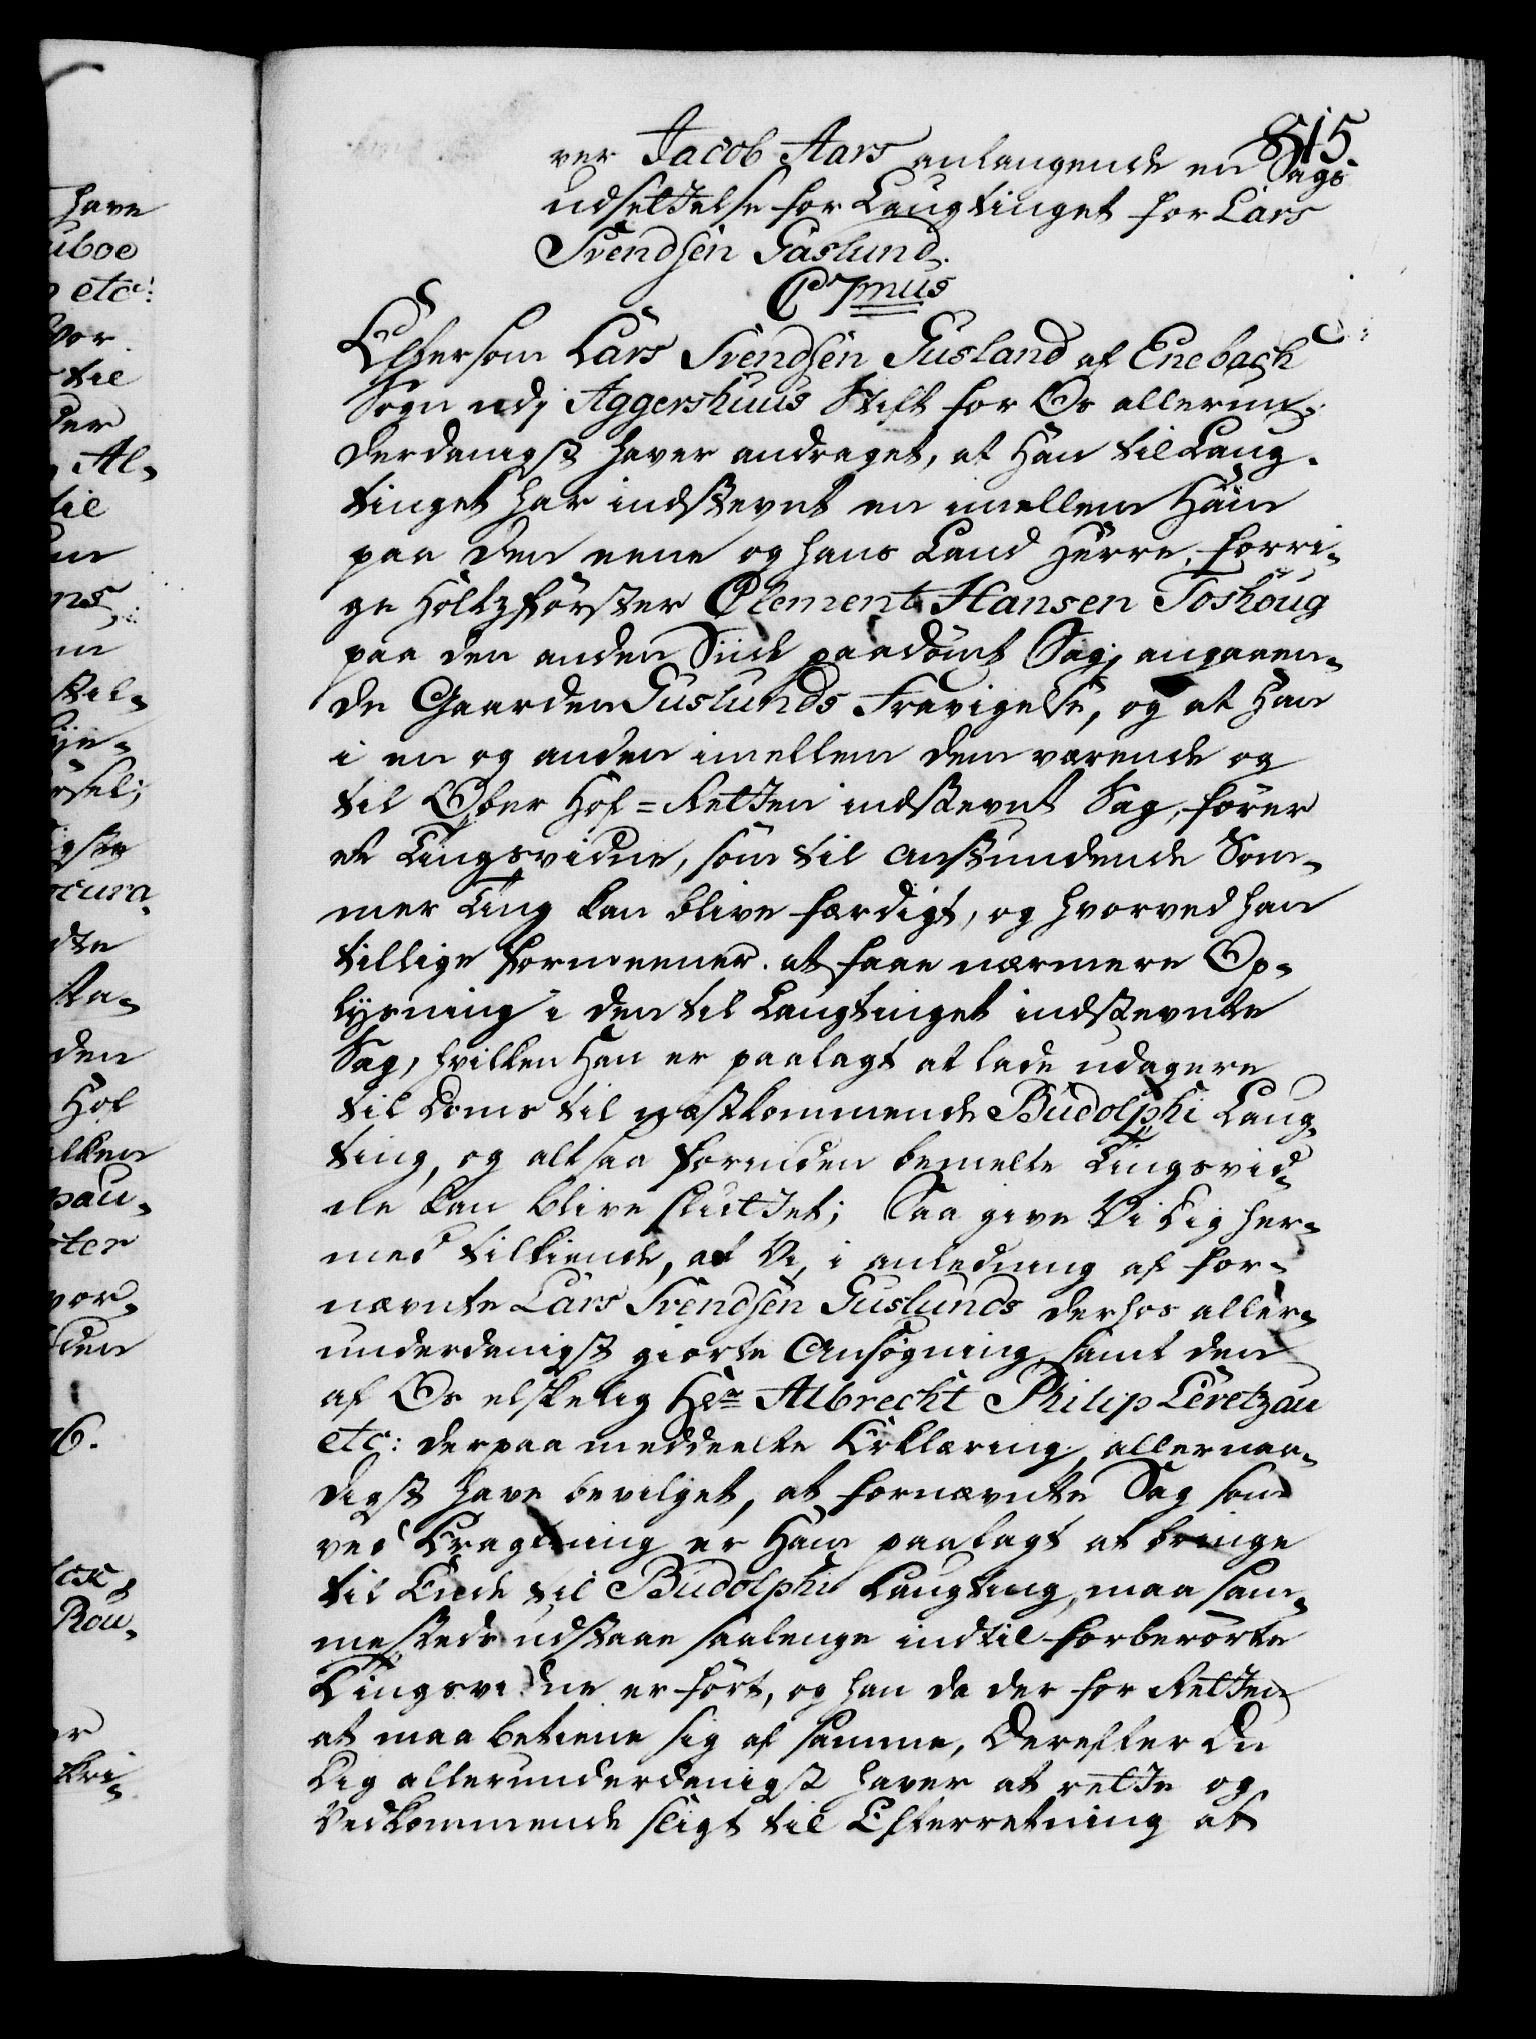 815.
ver Jacob Aars anlangende en Sags
udsettelse for Laugtinget for Lars
Svendsen Gaslund.
C7mus
Eftersom Lars Svendsen Gusland af Enebach
Sogn udj Aggershuus Stift for Os allerun-
derdanigst haver andraget, at Han til Laug-
tinget har indstevnt en imellem Ham
paa den eene og hans Land Herre, forri-
ge Holtzförster Clement Hansen Toshoug
paa den anden Siide paadömt Sag, angaaen-
de Gaarden Guslunds Fravigelse, og at Han
i en og anden imellem dem værende og
til Ober Hof-Retten indstevnt Sag, förer
et Tingsvidne, som til anstundende Som-
mer Ting kan blive færdigt, og hvorved han
tillige formeener at faae nærmere Op-
lysning i den til Laugtinget indstevnte
Sag, hvilken Han er paalagt at lade udagere
til Doms til næstkommende Budolphi Laug-
ting, og altsaa forinden bemelte Tingsvid-
ne kan blive sluttet; Saa give Vi Dig her-
med tilkiende, at Vi, i anledning af for-
nævnte Lars Svendsen Guslunds derhos aller-
underdanigst giorte Ansögning, samt den
af Os elskelig Hr Albrecht Philip Levetzau
etc: derpaa meddeelte Erklæring, allernaa-
digst have bevilget, at fornævnte Sag som
ved Eragtning er Ham paalagt at bringe
til Ende til Budolphi Laugting, maa sam-
mesteds udstaae saalenge indtil forberörte
Tingsvidne er fört, og han da der for Retten
at maa betiene sig af samme, Derefter Du
Dig allerunderdanigst haver at rette og
Vedkommende sligt til Efterretning at